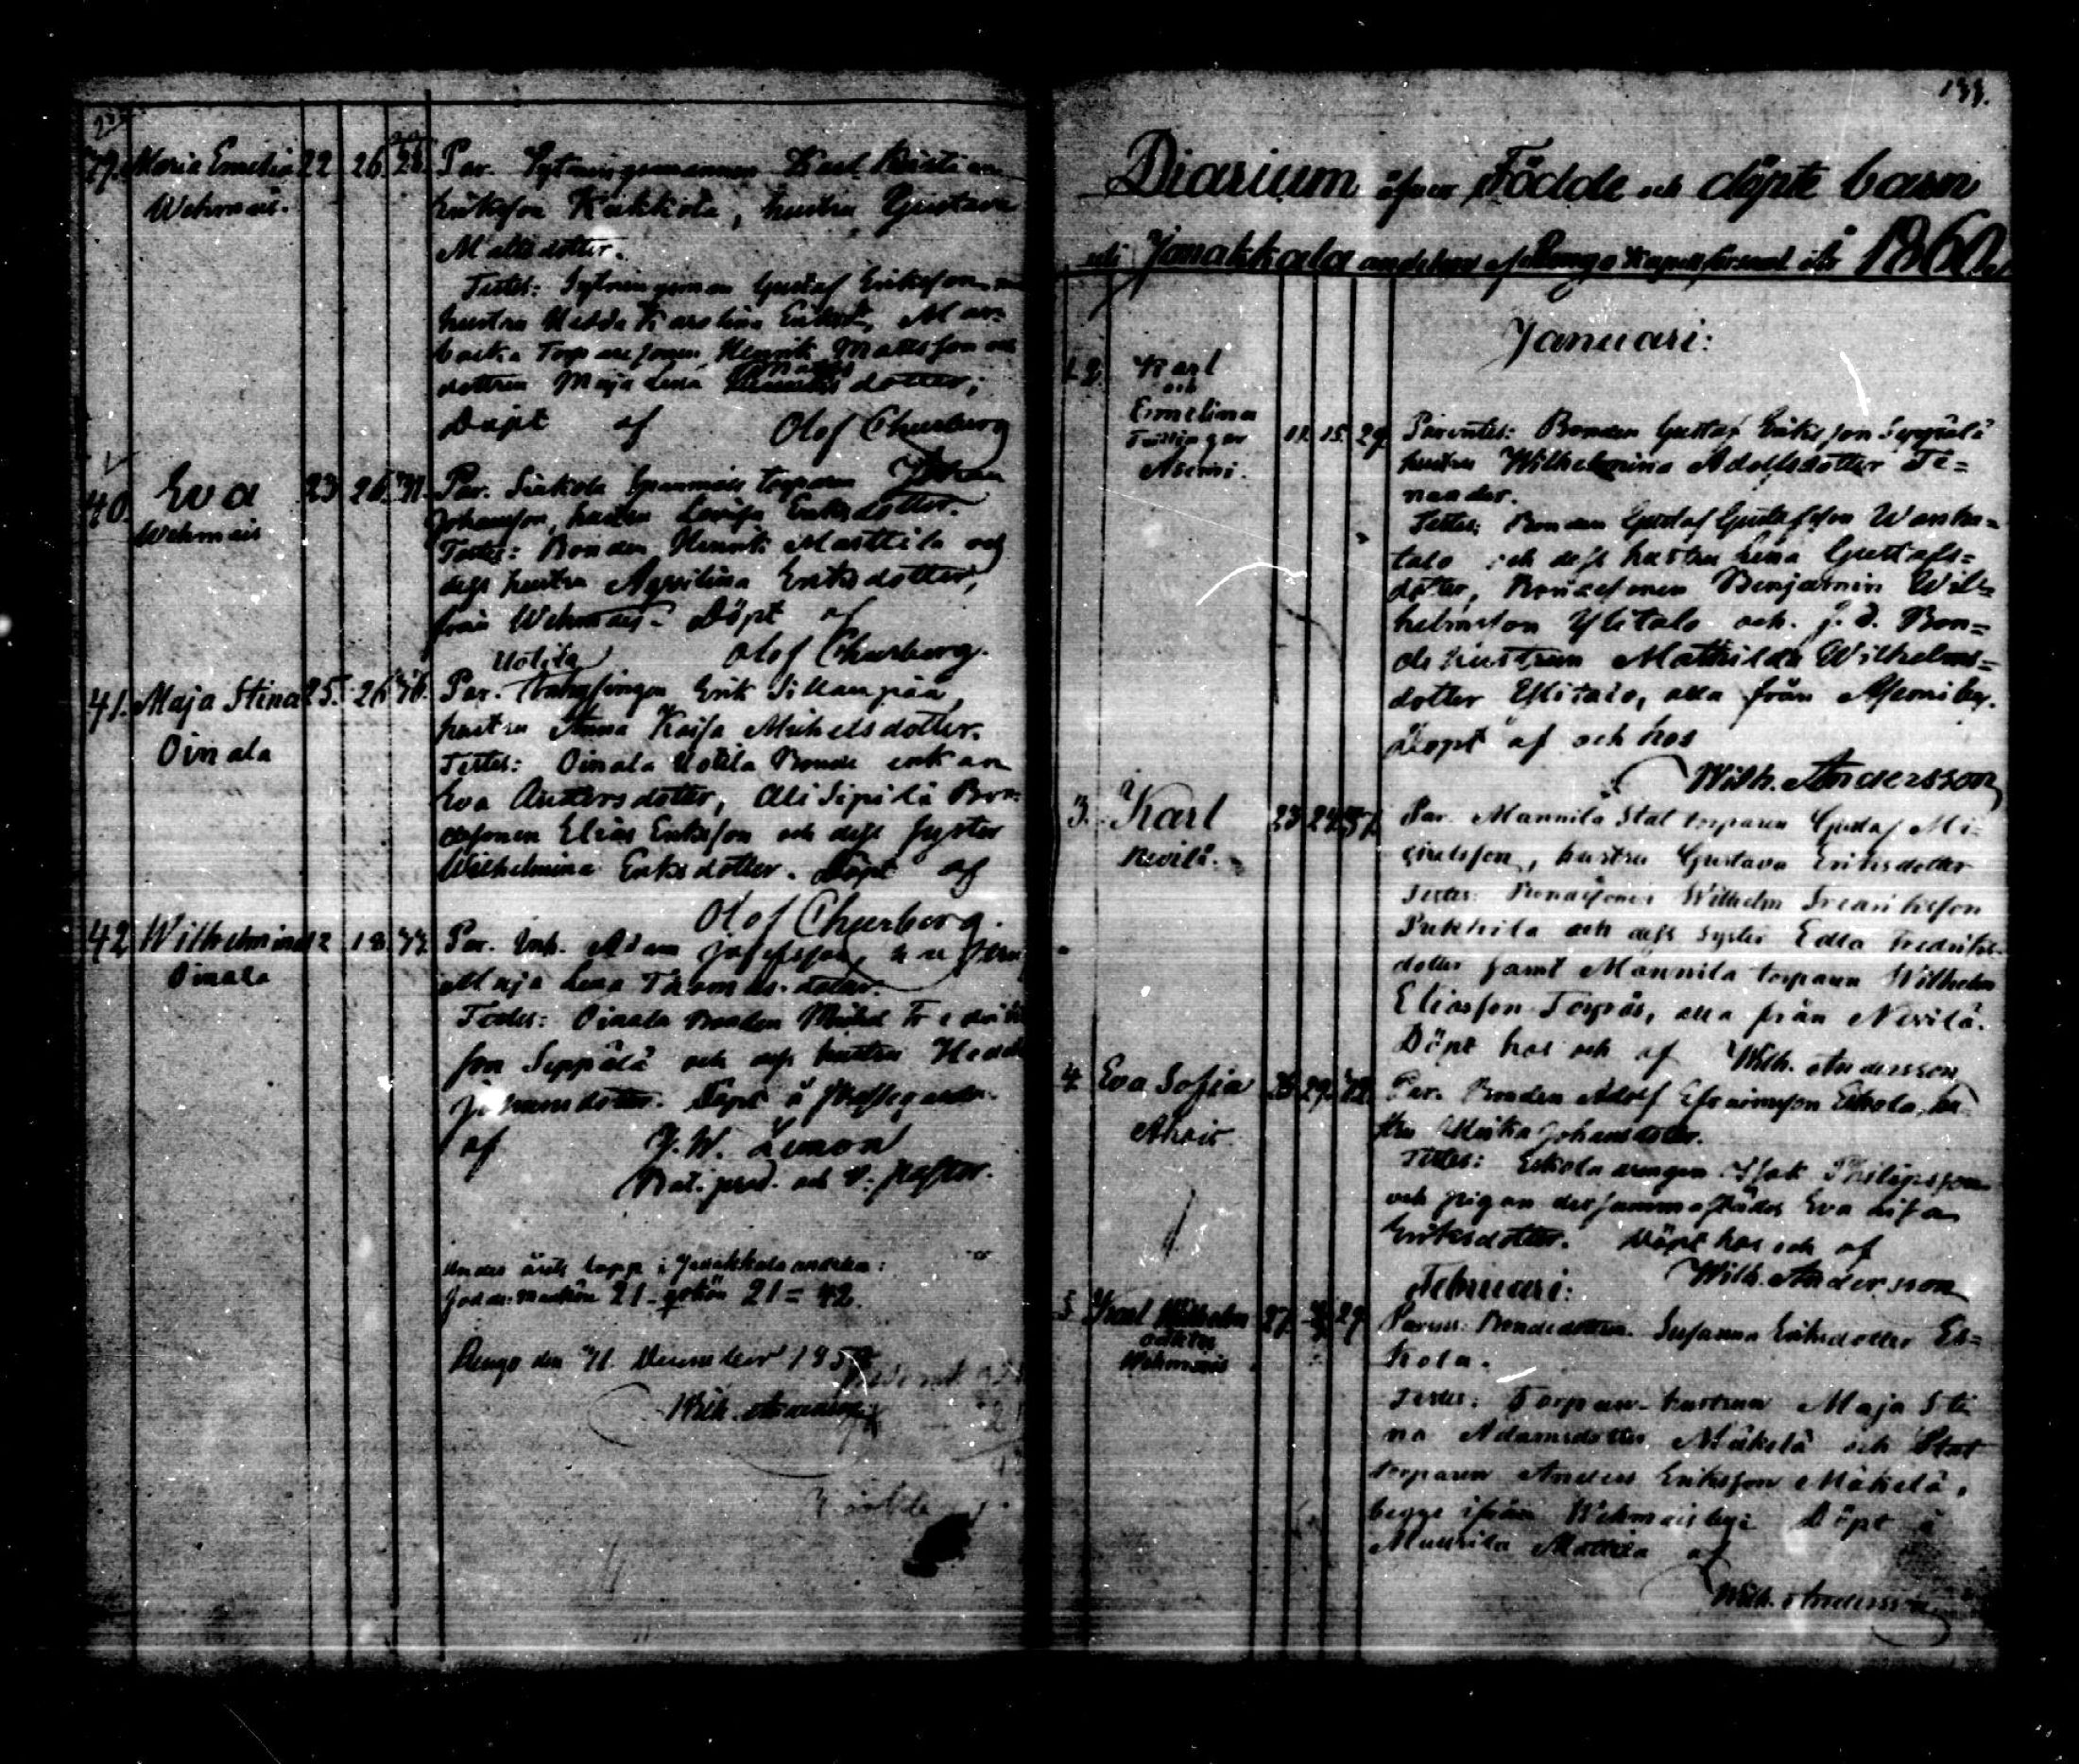 39. Maria Emelia 22 26 26. Par. Sytningsmannen Karl Kristian
Wehmais. Eriksson Kukkola, hustru Gustava
Mattsdotter.
Testes: Sytningsman Gustaf Eriksson
hustru Hedda Karolina
Torparesonen Henrik Mattsson och
dottren Maja Lena Matts dotter;
Döpt af Olof Churberg
40. Eva 23 26 31. Par. torparen Johan
Wehmais Johansson, hustru Lovisa Eriksdotter.
Testes: Bonden Henrik Marttila och
dess hustru Aqvilina Eriksdotter,
från Wehmais. Döpt af
Olof Churberg.
Uotila
41. Maja Stina 25. 26 36. Par. Erik Sillanpää,
Oinala hustru Anna Kaisa Michelsdotter.
Testes: Oinala Uotila Bonde enkan
Eva Andersdotter, Ali Sipilä Bon-
desonen Elias Eriksson och dess syster
Wilhelmina Eriksdotter. Döpt af
Olof Churberg.
42 Wilhelmina 12 18 33. Par. Inh. Adam Josefsson, hustru
Oinala Maja Lena Thomasdotter.
Testes: Oinala Bonden Michel Fredriks
son Seppälä och dess hustru Hedda
Johansdotter. Döpt å
af J. W. Limon
och v. pastor.
Under årets lopp i Janakkala andelen:
födde: mankön 21 - qvkön 21 = 42.
Rengo den 31. December 1859
Wilh. Andersson
133.
Diarium öfver Födde och döpte barn
uti Janakkala andelen af Rengo Kapellförsaml. år 1860.
Januari:
1.2. Karl
och
Emelina
Tvillingar 11. 15. 29. Parentes: Bonden Gustaf Eriksson Seppälä
Asemi. hustru Wilhelmina Adolfsdotter Te-
nander.
Testes: Bonden Gustaf Gustafsson Wanha-
talo och dess hustru Lena Gustafs-
dotter, Bondesonen Benjamin Wil-
helmsson Ylitalo och f. d. Bon-
de hustrun Mathilda Wilhelms-
dotter Ylitalo, alla från Asemi by.
Döpt af och hos
Wilh. Andersson
3. Karl 23 24 37. Par. Mannila Stat torparen Gustaf Mi-
Nevilä. chelsson, hustru Gustava Eriksdotter
Testes: Bondesonen Wilhelm Fredriksson
Pukkila och dess syster Edla Fredriks-
dotter samt Mannila torparen Wilhelm
Eliasson Torpās, alla från Nevilä.
Döpt hos och af Wilh. Andersson
4. Eva Sofia 29. Par. Bonden Adolf Efraimsson Eskola, hu-
Ahois. stru Ulrika Johansdotter.
Testes: Eskola drengen Isak Philipsson
och pigan dersammastädes Eva Lisa
Eriksdotter. Döpt hos och af
Wilh. Andersson
Februari:
5 Karl Wilhelm 27. 29 Parens: Bondedottren Susanna Eriksdotter Es-
oäkta kola.
Wehmais
Testes: Torpare-hustrun Maja Sti-
na Adamsdotter Mäkelä och Stat
torparen Anders Eriksson Mäkelä,
begge ifrån Wehmais by. Döpt å
af
Wilh. Andersson